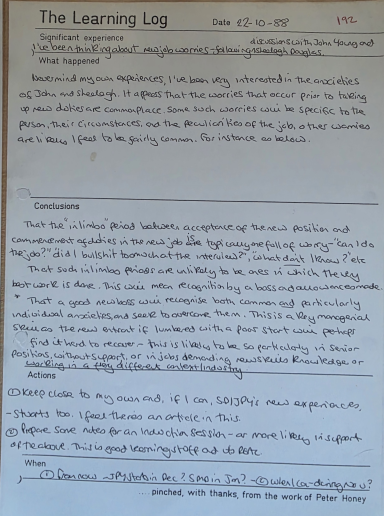 The Learning Log
Date 22-10-88
192
Significant experience
discussions with John Young and
I've been thinking about new job worries - following Sheelagh Douglas.
What happened
Nevermind my own experiences, I've been very interested in the anxieties
of John and Sheelagh. It appears that the worries that occur prior to taking
up new duties are commonplace. Some such worries will be specific to the
person, their circumstances, and the peculiarities of the job, other worries
are likely I feel to be fairly common. For instance as below.
Conclusions
That the "in limbo" period between acceptance of the new position and
commencement of duties in the new job is typically one full of worry - "can I do
the job?" "did I bullshit too much at the interview?", "what don't I know?" etc
That such in limbo periods are unlikely to be ones in which the very
best work is done. This will mean recognition by a boss and allowance made.
* That a good new boss will recognise both common and particularly
individual anxieties, and seek to overcome them. This is a key managerial
skill as the new entrant if lumbered with a poor start will perhaps
find it hard to recover - this is likely to be so particularly in senior
positions, without support, or in jobs demanding new skills knowledge, or
working in a very different context/industry
Actions
① Keep close to my own and, if I can, SD/JPY's new experiences,
- Stuarts too. I feel theres an article in this.
② Prepare some notes for an Induction Session - or more likely in support
of the above. This is good learning stuff and do pertc.
When
① From now → JPY starts in Dec? SMD in Jan? - ②
pinched, with thanks, from the work of Peter Honey